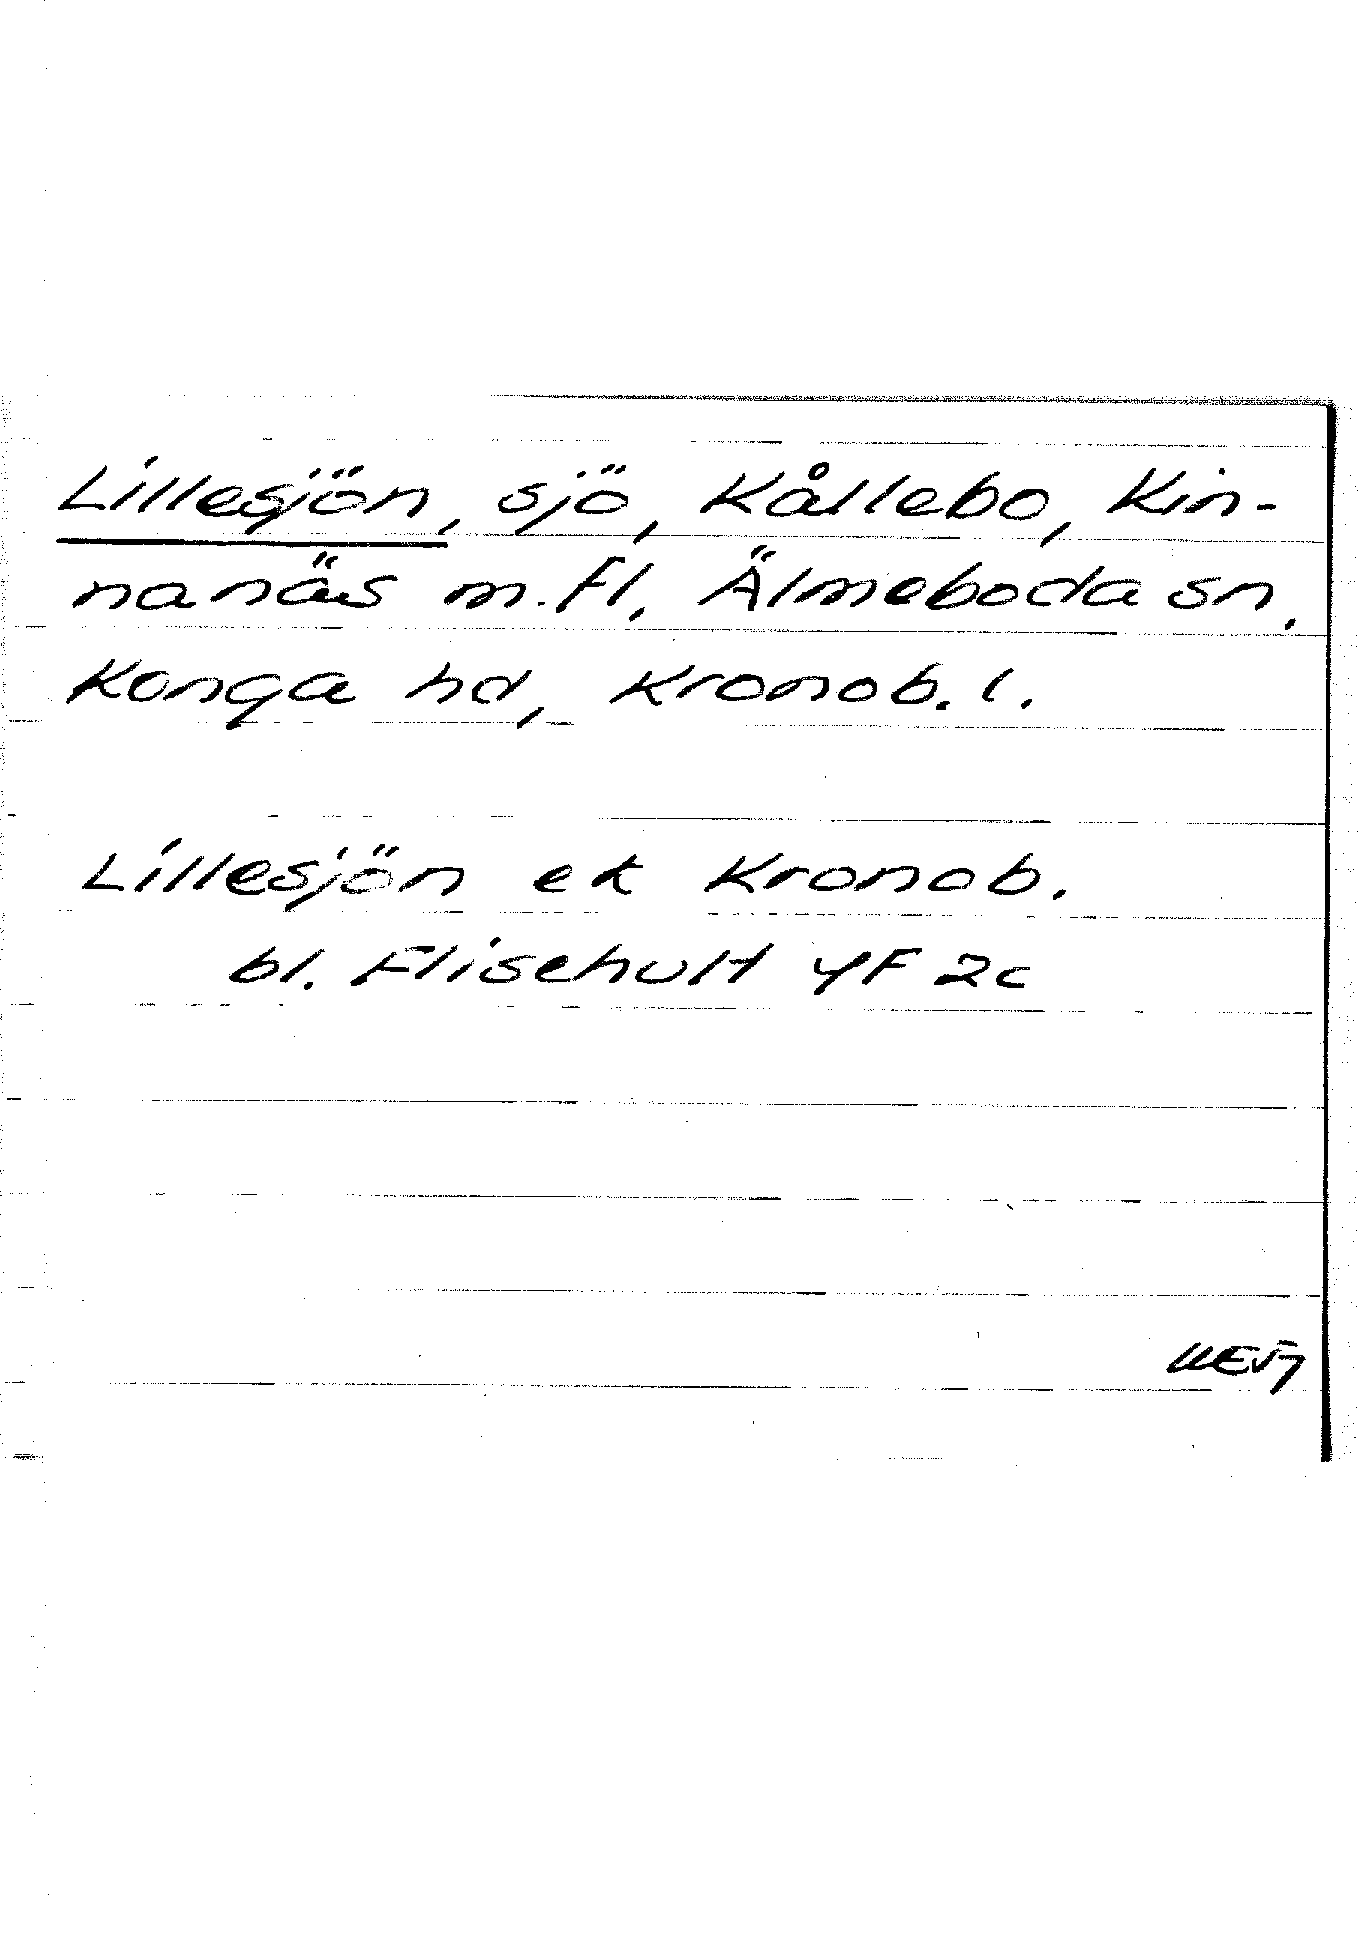 Lillesjön, sjö, Kållebo, Kin-
nanäs m.fl. Älmeboda sn,
Konga hd, Kronob. l.
Lillesjön ek Kronob.
bl. Elisehult 4F 2c